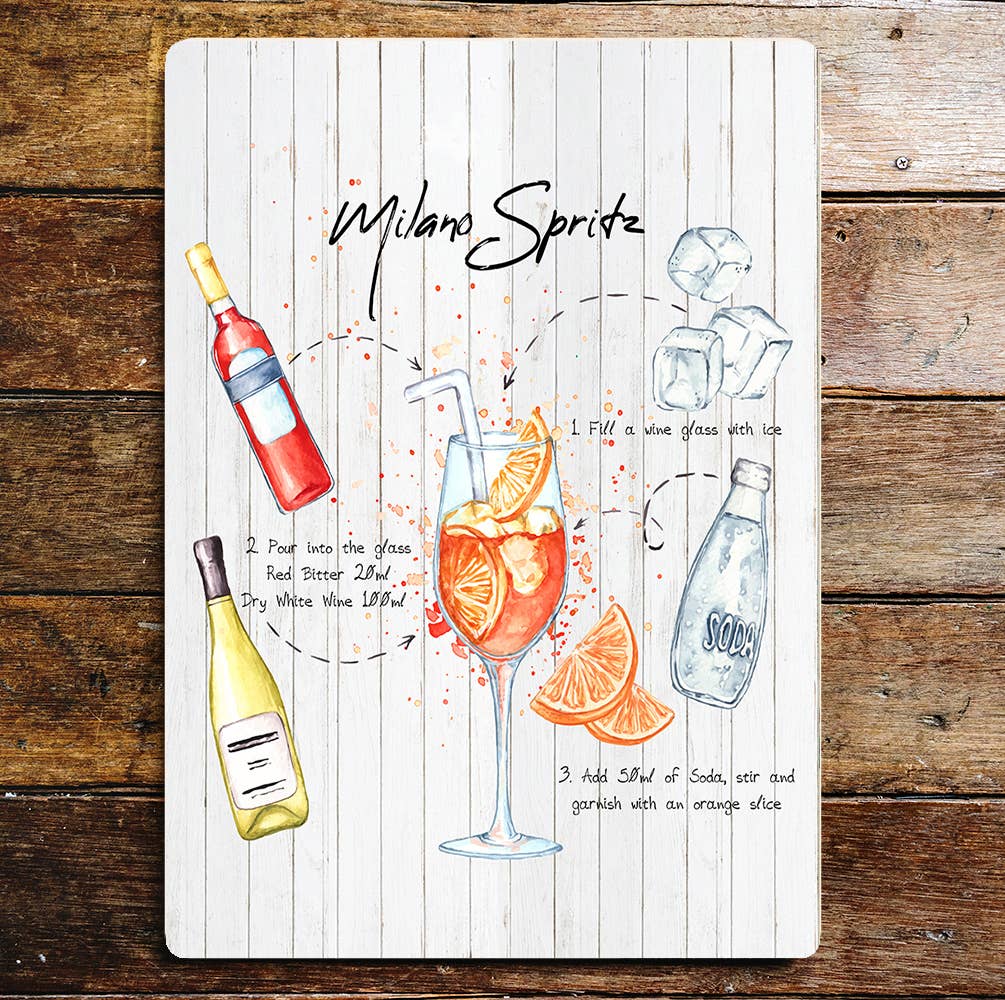 Milano Spritz
1. Fill a wine glass with ice
2. Pour into the glass
Red Bitter 20ml
Dry White Wine 100ml
SODA
3. Add 50ml of Soda, stir and
garnish with an orange slice